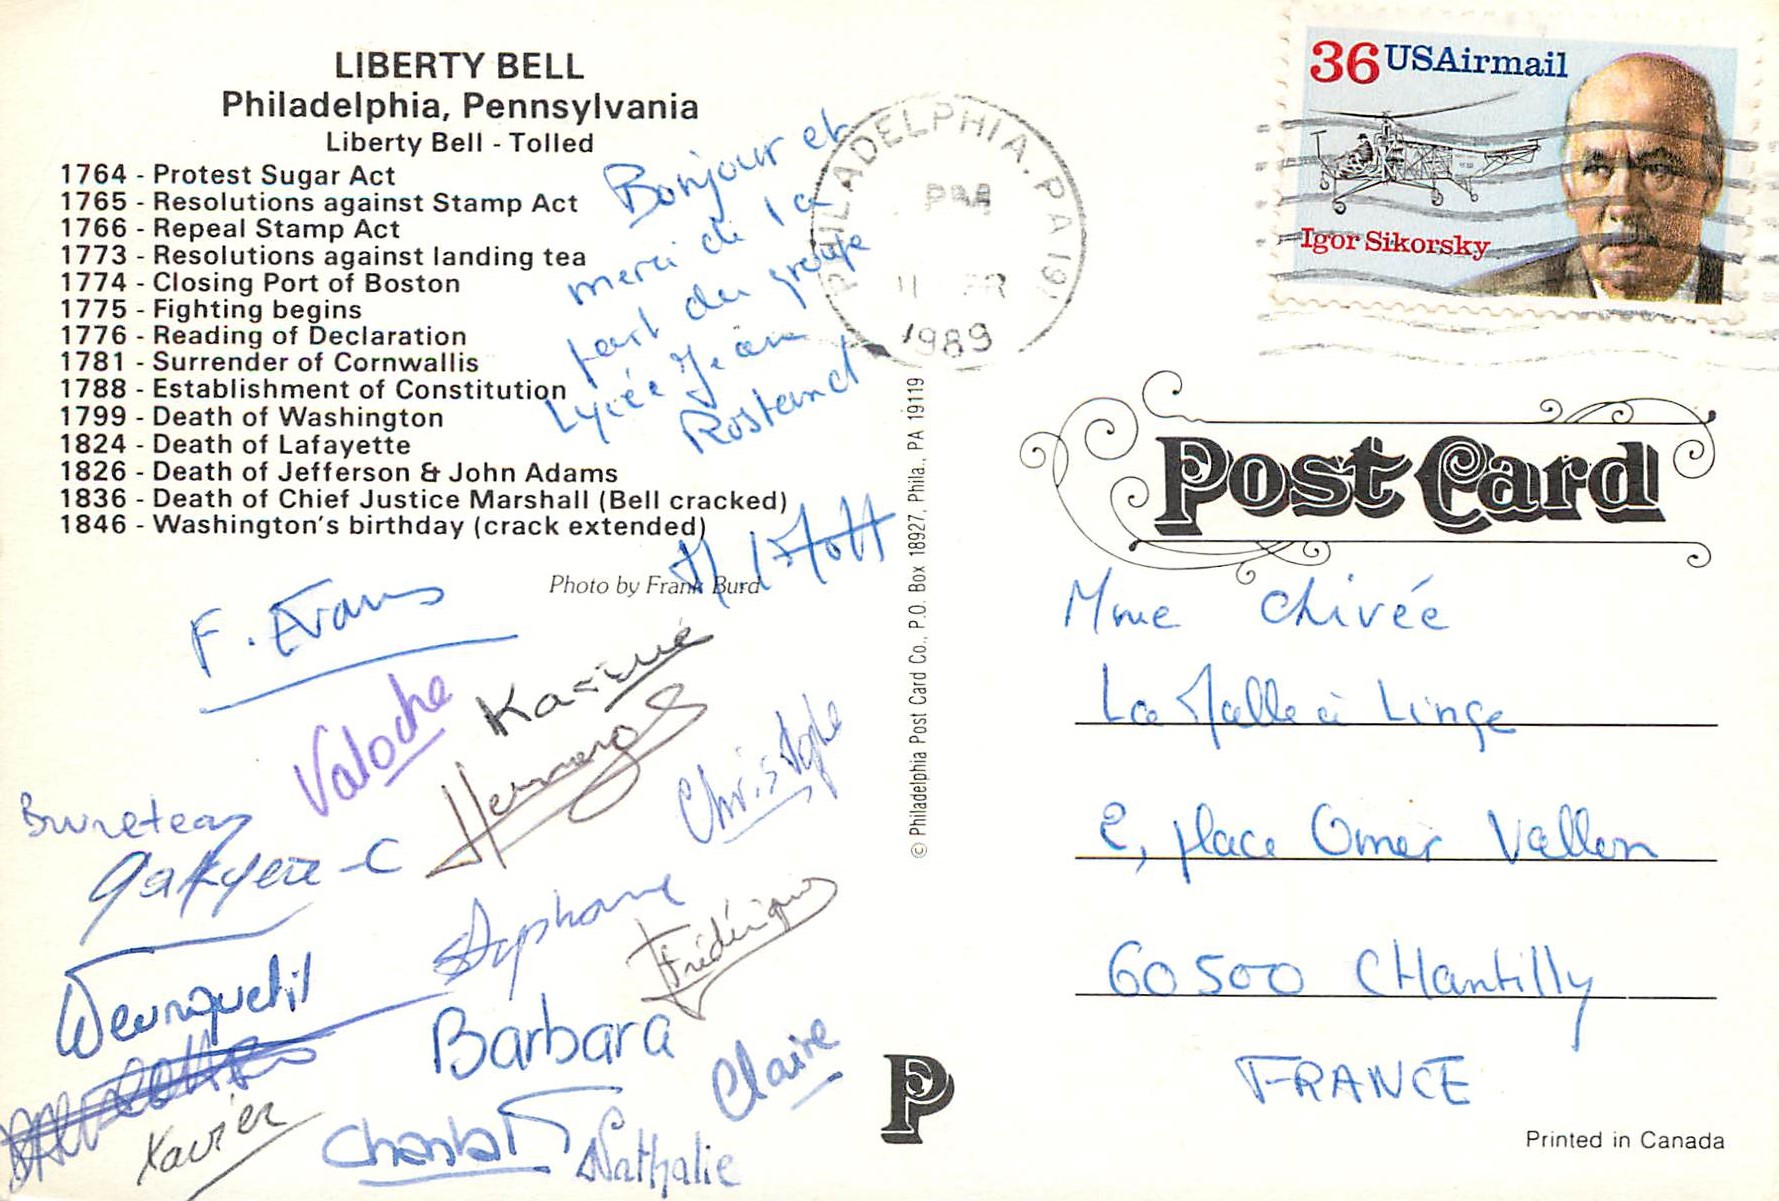 LIBERTY BELL
Philadelphia, Pennsylvania
Liberty Bell - Tolled
1764 - Protest Sugar Act
1765 - Resolutions against Stamp Act
1766 - Repeal Stamp Act
1773 - Resolutions against landing tea
1774 - Closing Port of Boston
1775 - Fighting begins
1776 - Reading of Declaration
1781 - Surrender of Cornwallis
1788 - Establishment of Constitution
1799 - Death of Washington
1824 - Death of Lafayette
1826 - Death of Jefferson & John Adams
1836 - Death of Chief Justice Marshall (Bell cracked)
1846 - Washington's birthday (crack extended)
Photo by Frank Burd
Bonjour et
merci de la
part du groupe
Lycée Jean
Rostand
F. Evans
Valoche
Karine
Christophe
Stéphane
Frédérique
Barbara
Claire
Xavier
Chantal
Nathalie
© Philadelphia Post Card Co., P.O. Box 18927, Phila., PA 19119
PHILADELPHIA, PA 191
PM
1989
36 USAirmail
Igor Sikorsky
Post Card
Mme Chivée
La Malle à Linge
2, place Omer Vallon
60500 CHantilly
FRANCE
P
Printed in Canada